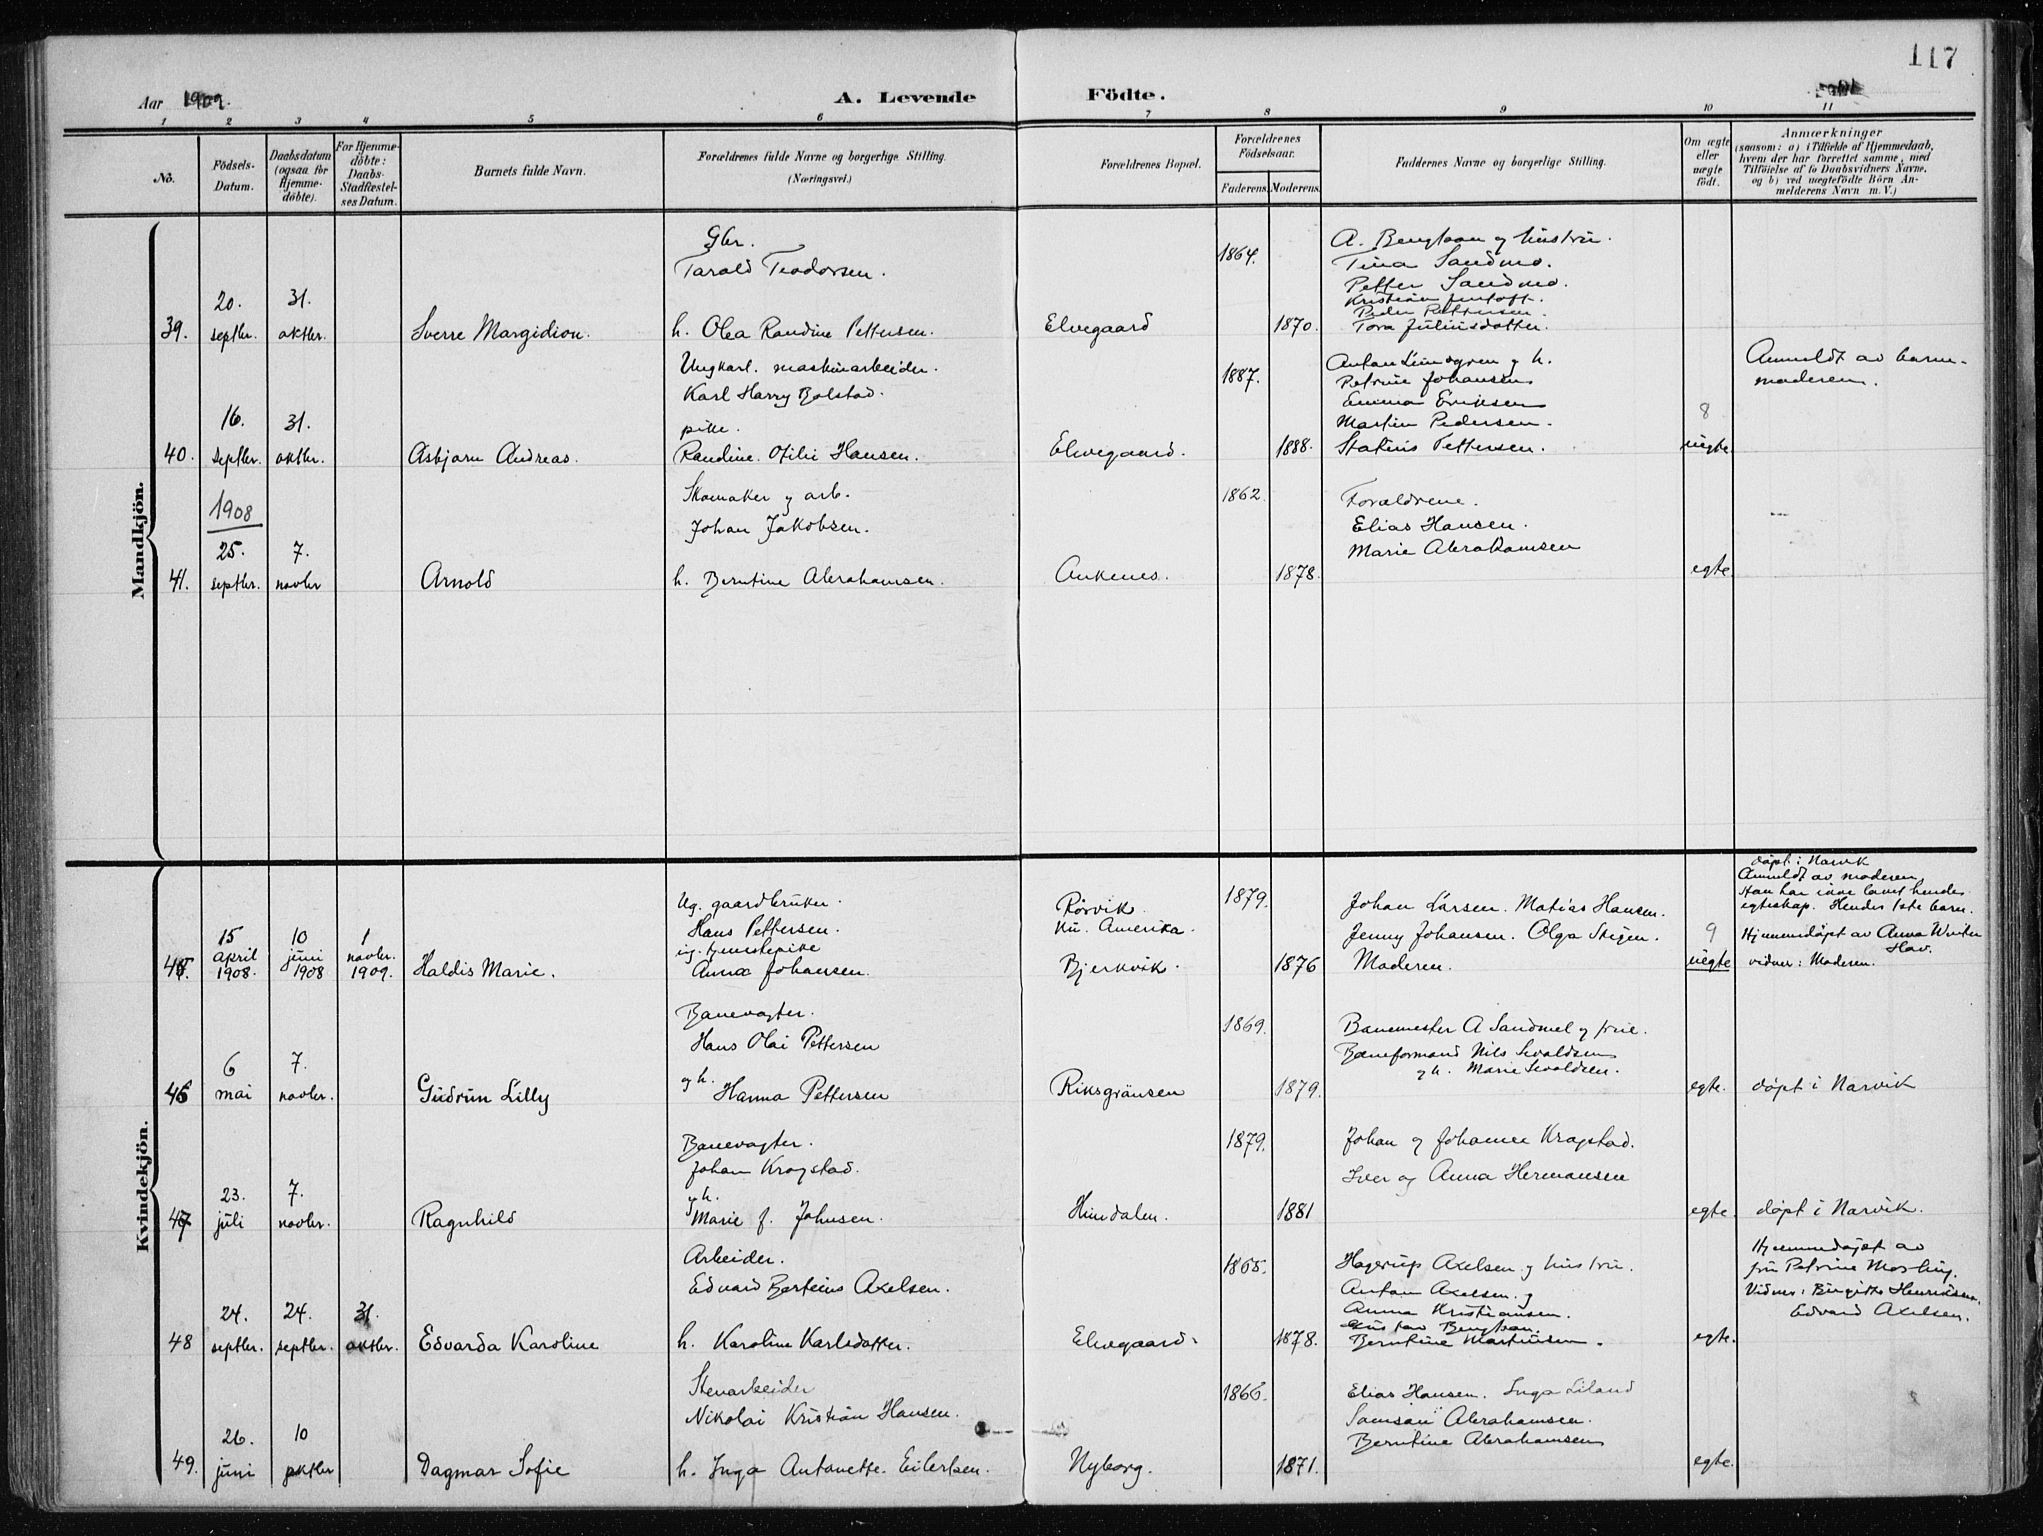 117
Aar 1909.
A. Levende Födte.
1 2 3 4 5 6 7 8 9 10 11
No.
Födsels-Datum.
Daabsdatum (ogsaa for Hjemme-döbte).
For Hjemme-döbte: Daabs-Stadfæstel-ses Datum.
Barnets fulde Navn.
Forældrenes fulde Navne og borgerlige Stilling.
(Næringsvei.)
Forældrenes Bopæl.
Forældrenes Födselsaar.
Faderens. Moderens.
Faddernes Navne og borgerlige Stilling.
Om ægte eller uægte födt.
Anmærkninger
(saasom: a) i Tilfælde af Hjemmedaab,
hvem der har forrettet samme, med
Tilföielse af to Daabsvidners Navne,
og b) ved uægtefödte Börn An-
melderens Navn m. V.)
Mandkjön.
39.
20. septbr.
31. oktbr.
Sverre Margidion.
Gbr.
Tarald Teodorsen.
h. Olea Randine Pettersen.
Elvegaard
1864.
1870.
A. Bengtson og hustru.
Tina Sandmo.
Petter Sandmo.
Kristian Jentoft.
Peder Pettersen.
Tora Juliusdatter.
40.
16. septbr.
31. oktbr.
Asbjørn Andreas.
Ungkarl. maskinarbeider.
Karl Harry Bolstad.
pike.
Randine Otilie Hansen.
Elvegaard.
1887.
1888.
Anton Lindgren og h.
Petrine Johansen
Emma Eriksen
Martin Pedersen.
Pettersen.
8
uegte
Anmeldt av barne-
moderen.
41.
1908
25. septbr.
7. novbr
Arnold
Skomaker og arb.
Johan Jakobsen.
h. Berntine Abrahamsen.
Ankenes.
1862
1878.
Forældrene.
Elias Hansen.
Marie Abrahamsen
egte.
Kvindekjön.
45.
15 april 1908.
10 juni 1908
1 novbr. 1909.
Haldis Marie.
Ug. gaardbruker.
Hans Pettersen.
ug. tjenestepike
Anna Johansen.
Rørvik.
nu. Amerika.
Bjerkvik.
1879.
1876
Johan Larsen. Matias Hansen.
Jenny Johansen. Olga Skjen.
Moderen.
9
uegte
døpt i Narvik
Anmeldt av moderen
Han har ikke lovet hende
egteskap. Hendes 1ste barn.
Hjemmedøpt av Anna Winter
Hav.
vidner: Moderen.
46
6 mai
7. novbr.
Gudrun Lilly
Banevagter.
Hans Olai Pettersen
og h. Hanna Pettersen
Riksgränsen
1869.
1879.
Banemester A Sandmel og frue.
Baneformand Nils Sivaldsen
og h. Marie Sivaldsen.
egte.
døpt i Narvik
47
23. juli
7. novbr.
Ragnhild
Banevagter.
Johan Kragstad.
og h.
Marie f. Johnsen.
Hundalen.
1879.
1881
Johan og Johanne Kragstad.
Iver og Anna Hermansen
egte.
døpt i Narvik.
48
24. septbr.
24. septbr.
31. oktbr.
Edvarda Karoline
Arbeider.
Edvard Berteus Axelsen.
h. Karoline Karlsdatter.
Elvegaard.
1865.
1878.
Hagerup Axelsen og hustru.
Anton Axelsen og
Anna Kristiansen.
Gustav Bengtson.
Berntine Martinsen.
egte.
Hjemmedøpt av
fru Petrine
Vidner: Birgitte Henriksen,
Edvard Axelsen.
49.
26. juni
10 oktbr
Dagmar Sofie
Stenarbeider
Nikolai Kristian Hansen.
h. Inga Antonette Eilertsen.
Nyborg.
1866.
1871.
Elias Hansen. Inga Liland
Samson Abrahamsen.
Berntine Abrahamsen
egte.